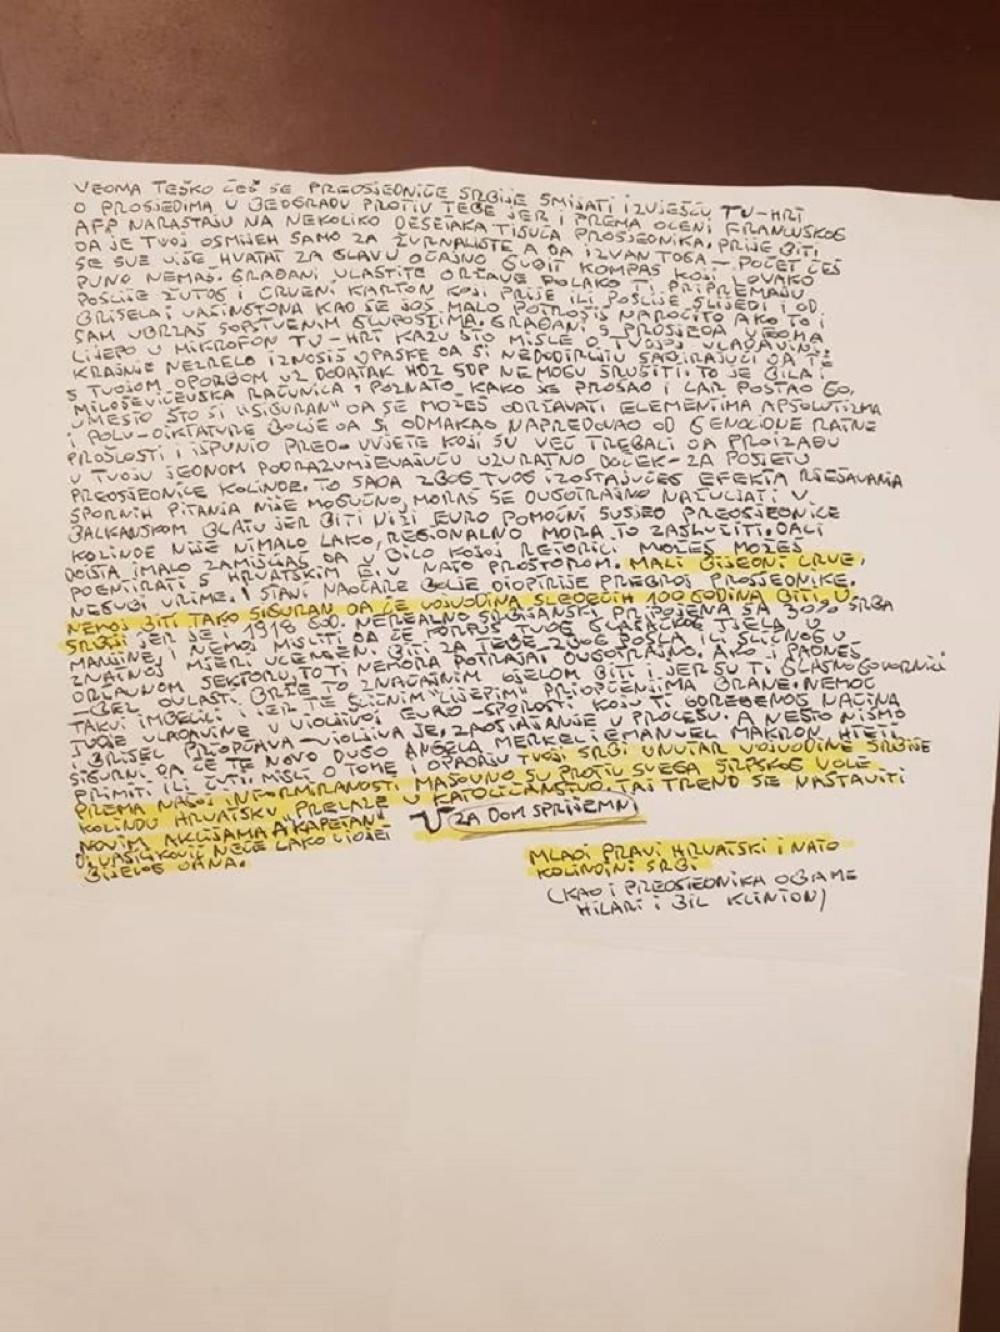 VEOMA TEŠKO ĆEŠ SE PREDSJEDNIČE SRBIJE SMIJATI IZVJEŠĆU TV-HRT
O PROSJEDIMA U BEOGRADU PROTIV TEBE JER I PREMA OCENI FRANCUSKOG
AFP NARASTAJU NA NEKOLIKO DESETAKA TISUĆA PROSJEDNIKA. PRIJE BITI
DA JE TVOJ OSMIJEH SAMO ZA ŽURNALISTE A DA IZVAN TOGA — POČET ĆEŠ
SE SVE VIŠE HVATAT ZA GLAVU OČAJNO GUBIT KOMPAS KOJI OVAKO
PUNO NEMAŠ. GRAĐANI VLASTITE DRŽAVE POLAKO TI PRIPREMAJU
POSLIJE ŽUTOG I CRVENI KARTON KOJI PRIJE ILI POSLIJE SLIJEDI I OD
BRISELA I VAŠINGTONA KAD SE JOŠ MALO POTROŠIŠ NAROČITO AKO TO I
SAM UBRZAŠ SOPSTVENIM GLUPOSTIMA. GRAĐANI S PROSJEDA VEOMA
LIJEPO U MIKROFON TV-HRT KAŽU ŠTO MISLE O TVOJOJ VLADAVINI.
KRAJNJE NEZRELO IZNOSIŠ OPASKE DA SI NEDODIRLJIV SADIRAJUĆI DA TE
S TVOJOM OPORBOM UZ DODATAK HDZ SDP NEMOGU SRUŠITI. TO JE BILA I
MILOŠEVIĆEVSKA RAČUNICA I POZNATO KAKO JE PROŠAO I CAR POSTAO GO.
UMESTO ŠTO SI "SIGURAN" DA SE MOŽEŠ ODRŽAVATI ELEMENTIMA APSOLUTIZMA
I POLU-DIKTATURE BOLJE DA SI ODMAKAO NAPREDOVAO OD GENOCIDNE RATNE
PROŠLOSTI I ISPUNIO PRED-UVJETE KOJI SU VEĆ TREBALI DA PROIZAĐU
U TVOJU JEDNOM PODRAZUMJEVAJUĆU UZVRATNO DOČEK-ZA POSJETU
PREDSJEDNICE KOLINDE. TO SADA ZBOG TVOG IZOSTAJUĆEG EFEKTA RJEŠAVANJA
SPORNIH PITANJA NIJE MOGUĆNO, MORAŠ SE DUGOTRAJNO NAŽULJATI U
BALKANSKOM BLATU JER BITI NIŽI EURO POMOĆNI SUSJED PREDSJEDNICE
KOLINDE NIJE NIMALO LAKO, REGIONALNO MORA TO ZASLUŽITI. DALI
DOISTA IMALO ZAMIŠLJAŠ DA U BILO KOJOJ RETORICI MOŽEŠ MOŽEŠ
POENTIRATI S HRVATSKIM EU NATO PROSTOROM. MALI BIJEDNI CRVE,
NEGUBI VRIME. I STAVI NAOČARE BOLJE DIOPTRIJE PREBROJ PROSJEDNIKE.
NEMOJ BITI TAKO SIGURAN DA ĆE VOJVODINA SLEDEĆIH 100 GODINA BITI U
SRBIJI JER JE I 1918 GOD. NEREALNO SRBIJANSKI PRIPOJENA SA 30% SRBA
MANJINE, I NEMOJ MISLITI DA ĆE KORPUS TVOG GLASAČKOG TJELA U
ZNATNOJ MJERI UCENJEN BITI ZA TEBE ZBOG POSLA ILI SLIČNOG U
DRŽAVNOM SEKTORU, TO TI NEMORA POTRAJAT DUGOTRAJNO. AKO I PADNEŠ
BRŽE TO ZNAČAJNIM DJELOM BITI I JER SU TI GLASNOGOVORNICI
TAKVI IMBECILI I JER TE SLIČNIM "LIJEPIM" PRIOPĆENJIMA BRANE. NEMOĆ
TVOJE VLADAVINE U VIDLJIVOJ EURO-SPOROSTI KOJU TI
I BRISEL PRIOPĆAVA-VIDLJIVA JE, ZAOSTAJANJE U PROCESU. A NEŠTO NISMO
SIGURNI DA ĆE TE NOVO DUGO ANGELA MERKEL I EMANUEL MAKRON HTETI
PRIMITI ILI ČUTI MISLI O TOME I OPADAJU TVOJI SRBI UNUTAR VOJVODINE SRBIJE
PREMA NAŠOJ INFORMIRANOSTI MASOVNO SU PROTIV SVEGA SRPSKOG VOLE
KOLINDU HRVATSKU PRELAZE U KATOLIČANSTVO. TAJ TREND SE NASTAVITI
NOVIM AKCIJAMA A "KAPETAN"
D. VASILJKOVIĆ NEĆE LAKO VIDJETI
BIJELOG DANA.
U ZA DOM SPREMNI
MLADI PRAVI HRVATSKI I NATO
KOLINDINI SRBI
(KAO I PREDSJEDNIKA OBAME
HILARI I BIL KLINTON)